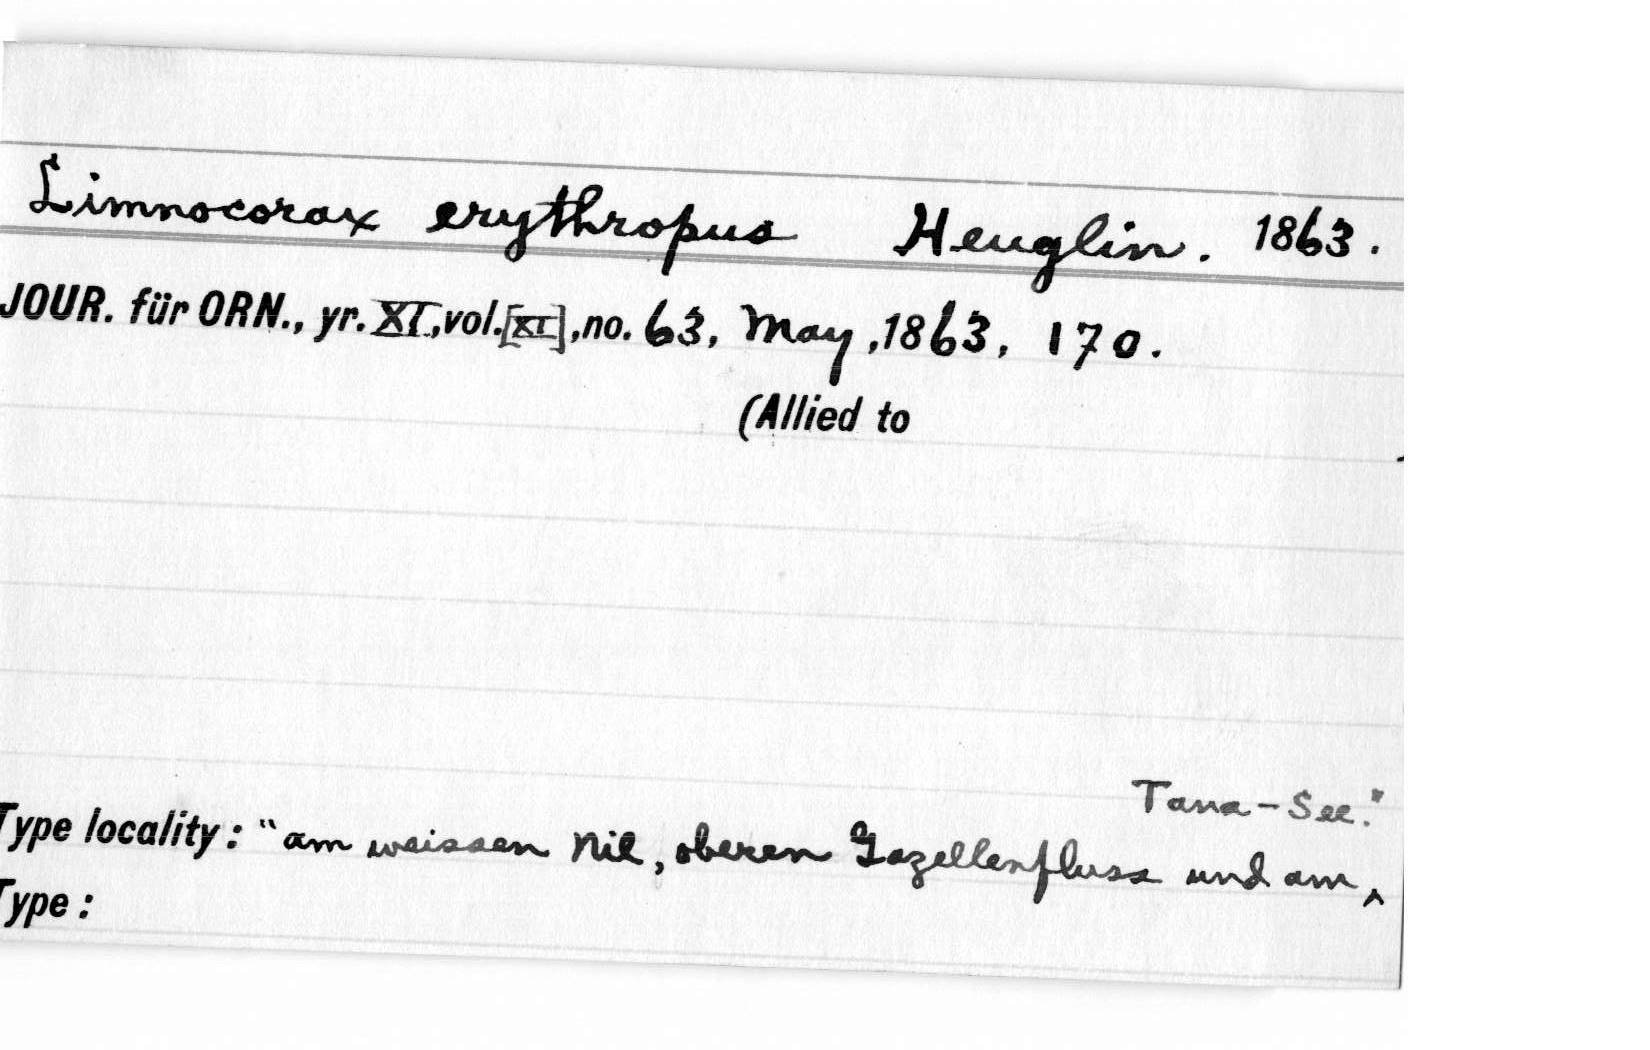 Limnocorax erythropus Heuglin. 1863.
JOUR. für ORN., yr. XI, vol. [XI], no. 63, May, 1863, 170.
(Allied to
Tana-See."
Type locality: "am weissen Nil, oberen Gazellenfluss und am ^
Type: